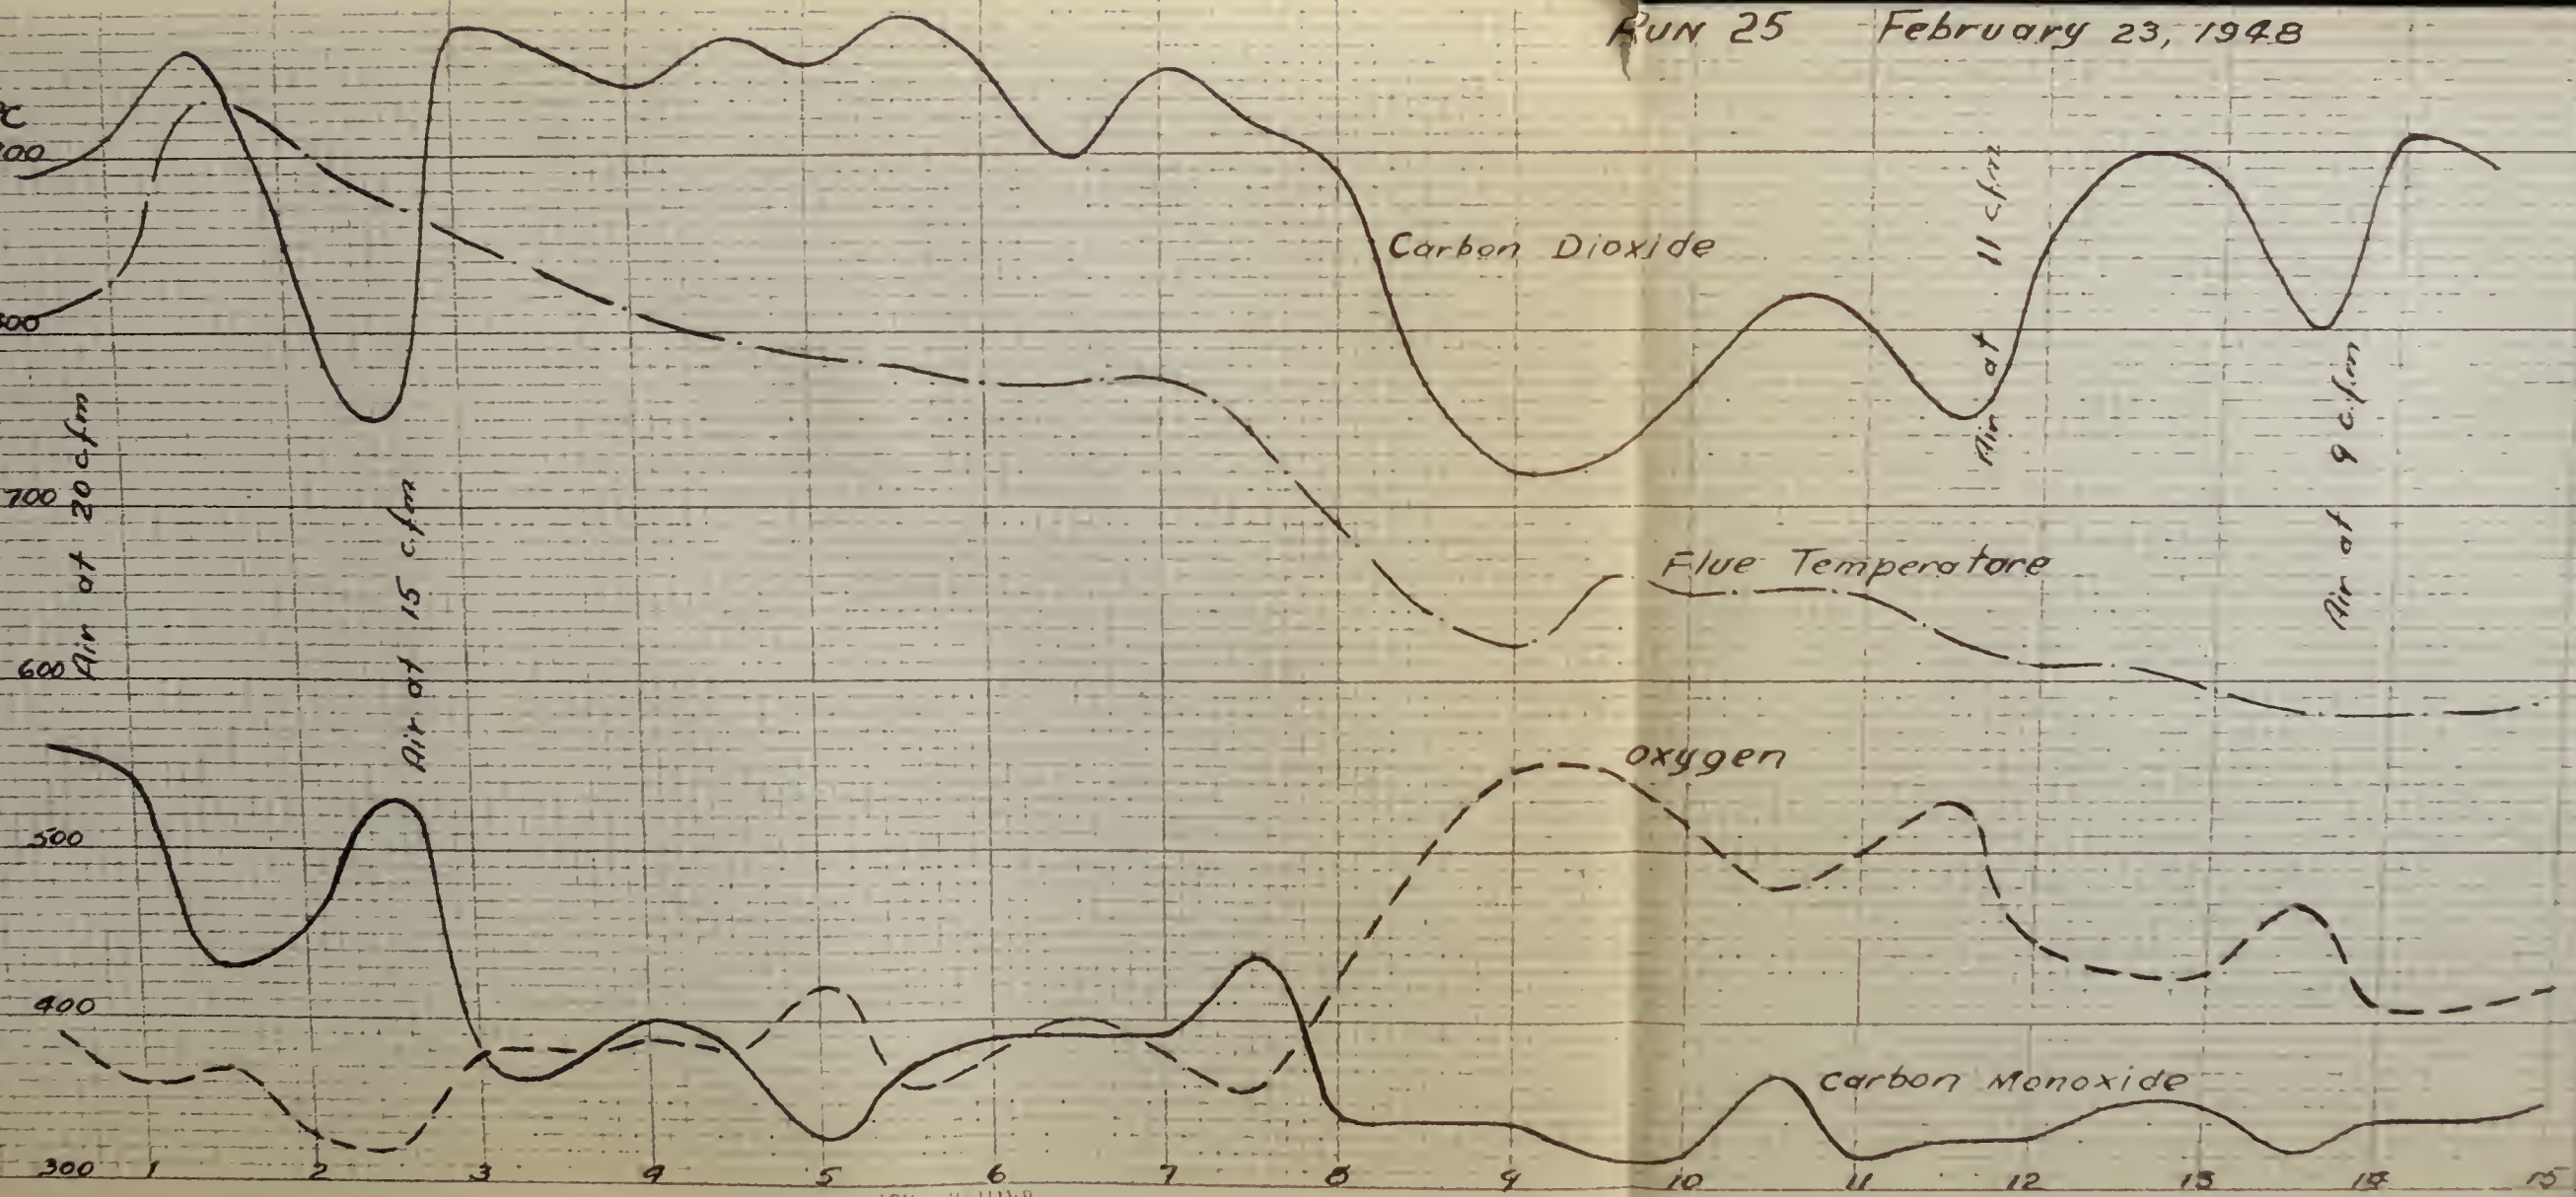 RUN 25 February 23, 1948
°C
800
700
600
500
400
300
Air at 20 cfm
Air at 15 cfm
Carbon Dioxide
Air at 11 cfm
Air at 9 c.f.m
Flue Temperature
oxygen
Carbon Monoxide
1 2 3 4 5 6 7 8 9 10 11 12 13 14 15